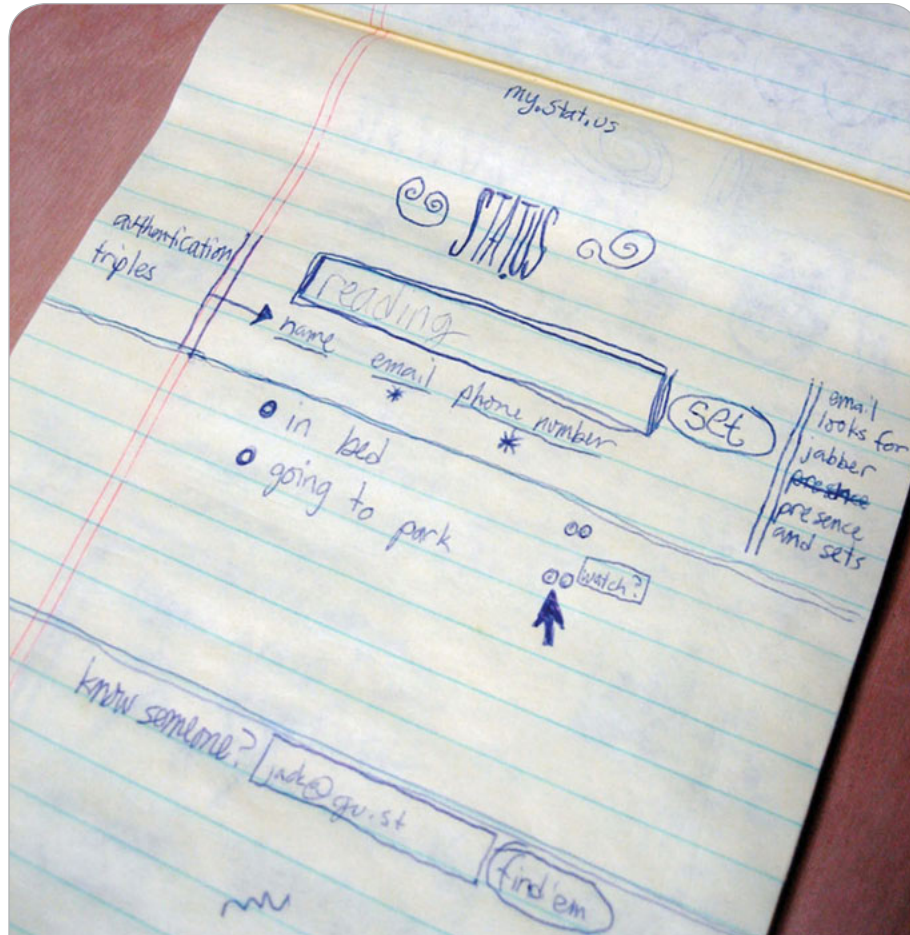 my.stat.us
STAT.US
authentication
triples
reading
name
email
phone number
*
*
set
email
looks for
jabber
presence
presence
and sets
in bed
going to park
watch?
know someone?
jack@gu.st
find'em